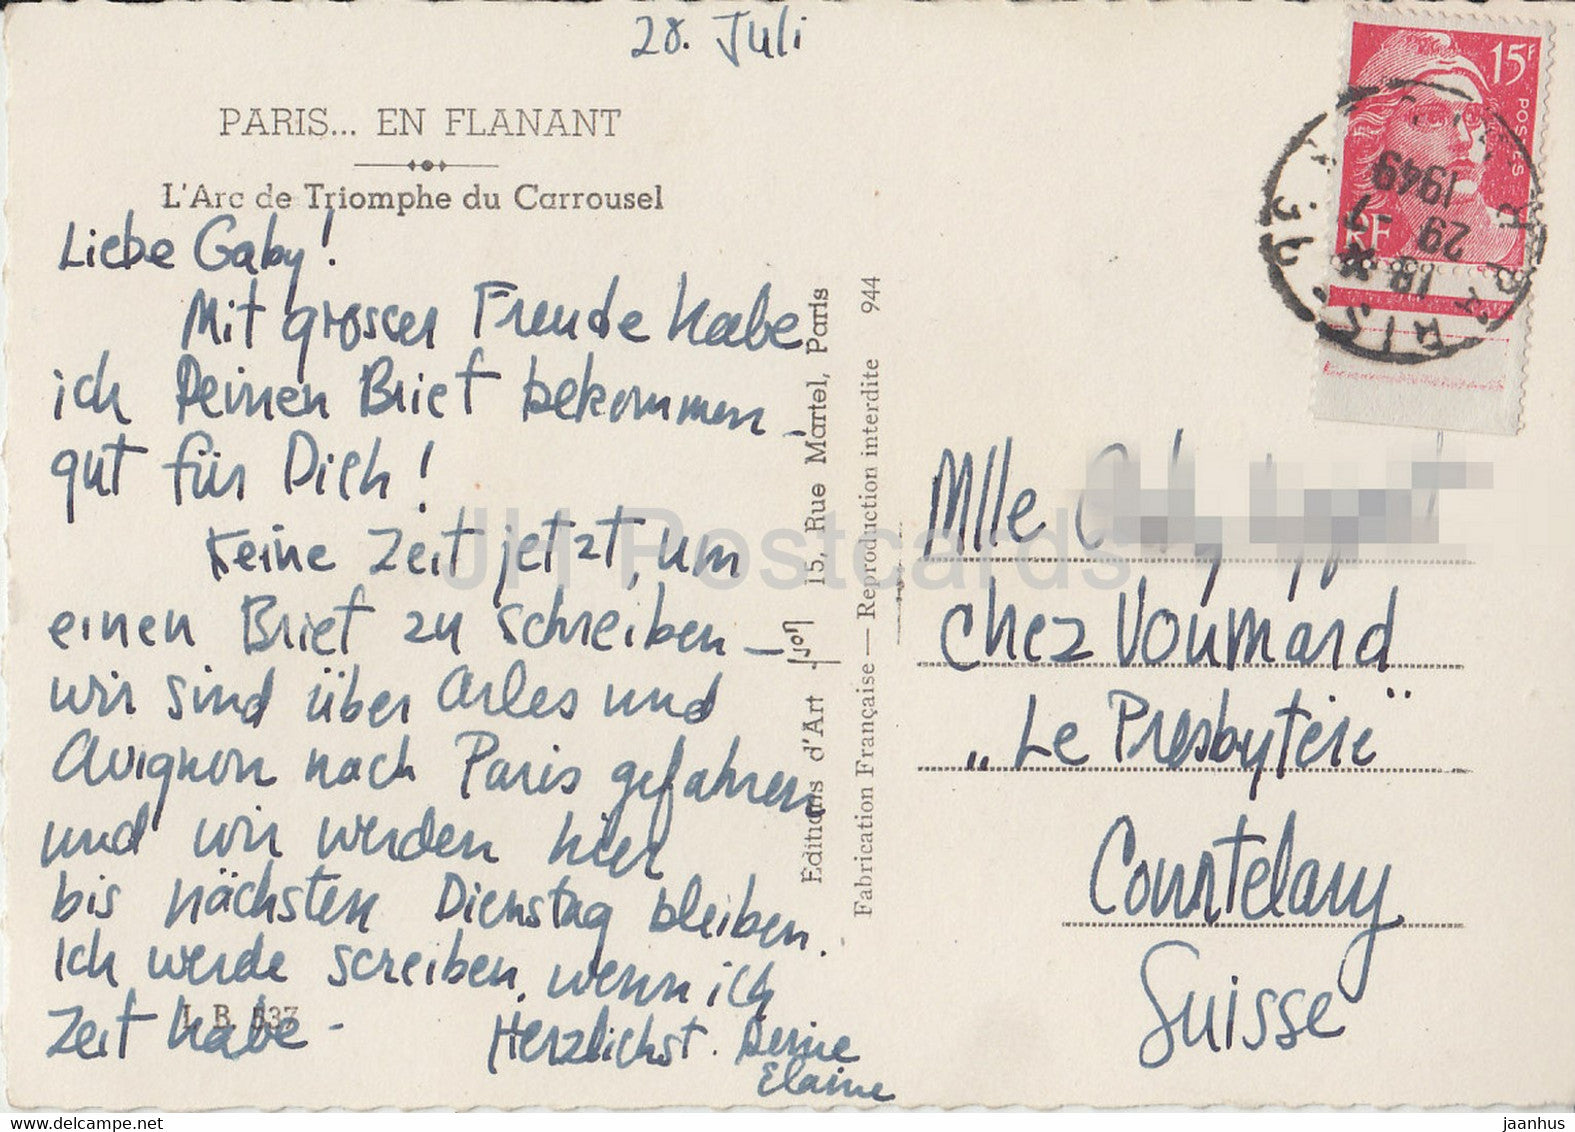 28. Juli
PARIS... EN FLANANT
L'Arc de Triomphe du Carrousel
Liebe Gaby!
Mit grosser Freude habe
ich Deinen Brief bekommen -
gut für Dich!
Keine Zeit jetzt, um
einen Brief zu schreiben -
wir sind über Arles und
Avignon nach Paris gefahren
und wir werden hier
bis nächsten Dienstag bleiben.
Ich werde screiben, wenn ich
Zeit habe -
Herzlichst. Deine
Elaine
L. B. 537
Éditions d'Art Yvon, 15, Rue Martel, Paris
Fabrication Française — Reproduction interdite 944
15F
POSTES
RF
18
29 -7
1949
PARIS
Mlle
chez Voumard
„Le Presbytère"
Courtelary
Suisse
JH Postcards
www.delcampe.net
jaanhus